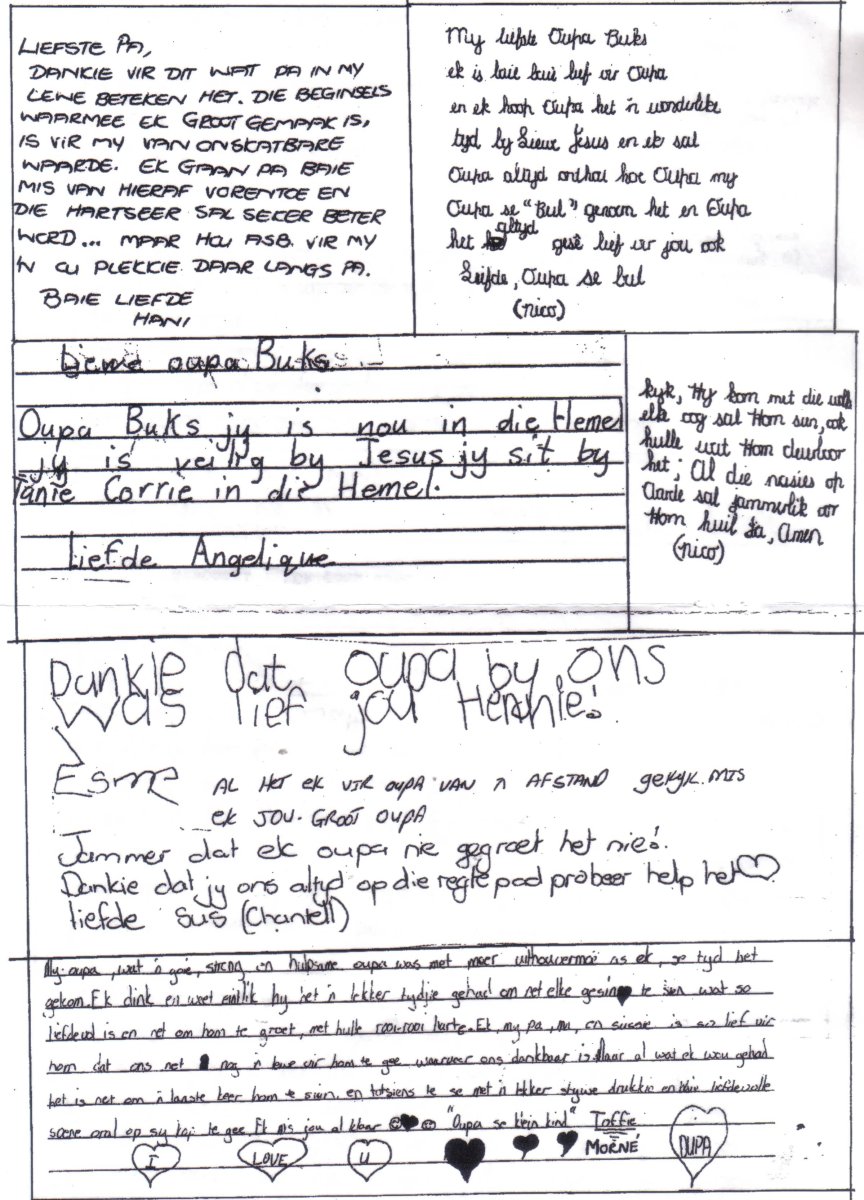 LIEFSTE PA,
DANKIE VIR DIT WAT PA IN MY
LEWE BETEKEN HET. DIE BEGINSELS
WAARMEE EK GROOT GEMAAK IS,
IS VIR MY VAN ONSKATBARE
WAARDE. EK GAAN PA BAIE
MIS VAN HIERAF VORENTOE EN
DIE HARTSEER SAL SEKER BETER
WORD... MAAR HOU ASB. VIR MY
'N OU PLEKKIE DAAR LANGS PA.
BAIE LIEFDE
HANI
My liefste Oupa Buks
ek is baie baie lief vir Oupa
en ek hoop Oupa het 'n wonderlike
tyd by Liewe Jesus en ek sal
Oupa altyd onthou hoe Oupa my
Oupa se "Bul" genoem het en Oupa
het altyd gesê lief vir jou ook
Liefde, Oupa se bul
(nico)
Liewe oupa Buks
Oupa Buks jy is nou in die Hemel
jy is veilig by Jesus jy sit by
Tanie Corrie in die Hemel.
Liefde Angelique
kyk, Hy kom met die wolke
elke oog sal Hom sien, ook
hulle wat Hom deurboor
het; Al die nasies op
Aarde sal jammerlik oor
Hom huil Ja, Amen
(nico)
Dankie dat oupa by ons
was lief jou Hennie!
Esme
AL HET EK VIR OUPA VAN 'n AFSTAND gekyk. MIS
EK JOU. GROOT OUPA
Jammer dat ek oupa nie gegroet het nie!
Dankie dat jy ons altyd op die regte pad probeer help het
liefde sus (Chantell)
My oupa, wat 'n goie, streng en hulpsame oupa was met meer uithouvermoë as ek, se tyd het
gekom. Ek dink en weet eintlik hy het 'n lekker tydjie gehad om net elke gesin te sien wat so
liefdevol is en net om hom te groet, met hulle rooi-rooi harte. Ek, my pa, ma, en sussie is so lief vir
hom dat ons net nog 'n lewe vir hom te gee waarvoor ons dankbaar is. Maar al wat ek wou gehad
het is net om 'n laaste keer hom te sien en totsiens te se met 'n lekker stywe drukkie en liefdevolle
soene oral op sy kop te gee. Ek mis jou al klaar "Oupa se klein kind" Toffie
MORNÉ
I LOVE U OUPA